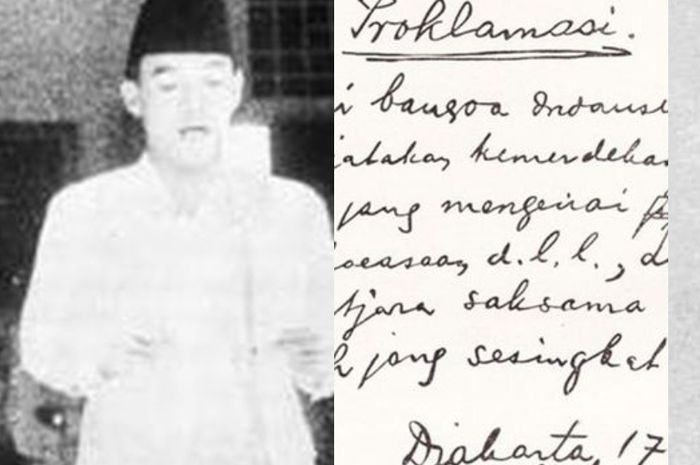 Proklamasi.
i bangsa Indonesi
jatakan kemerdekaa
jang mengenai
koeasaan d.l.l., d
tjara saksama
h jang sesingkat
Djakarta, 17